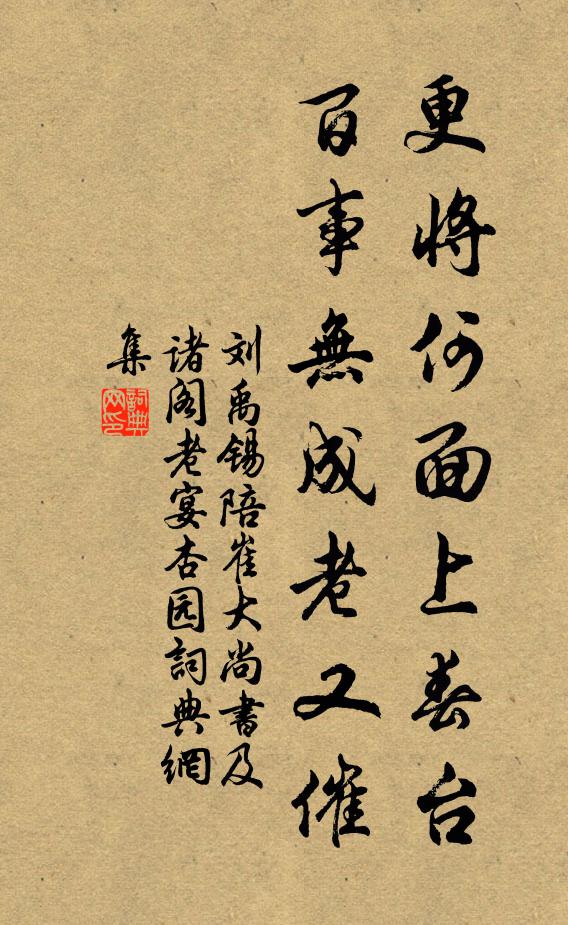 更将何面上春台
百事無成老又催
刘禹锡陪崔大尚書及
诸阁老宴杏园詞典網
集
詞典网印